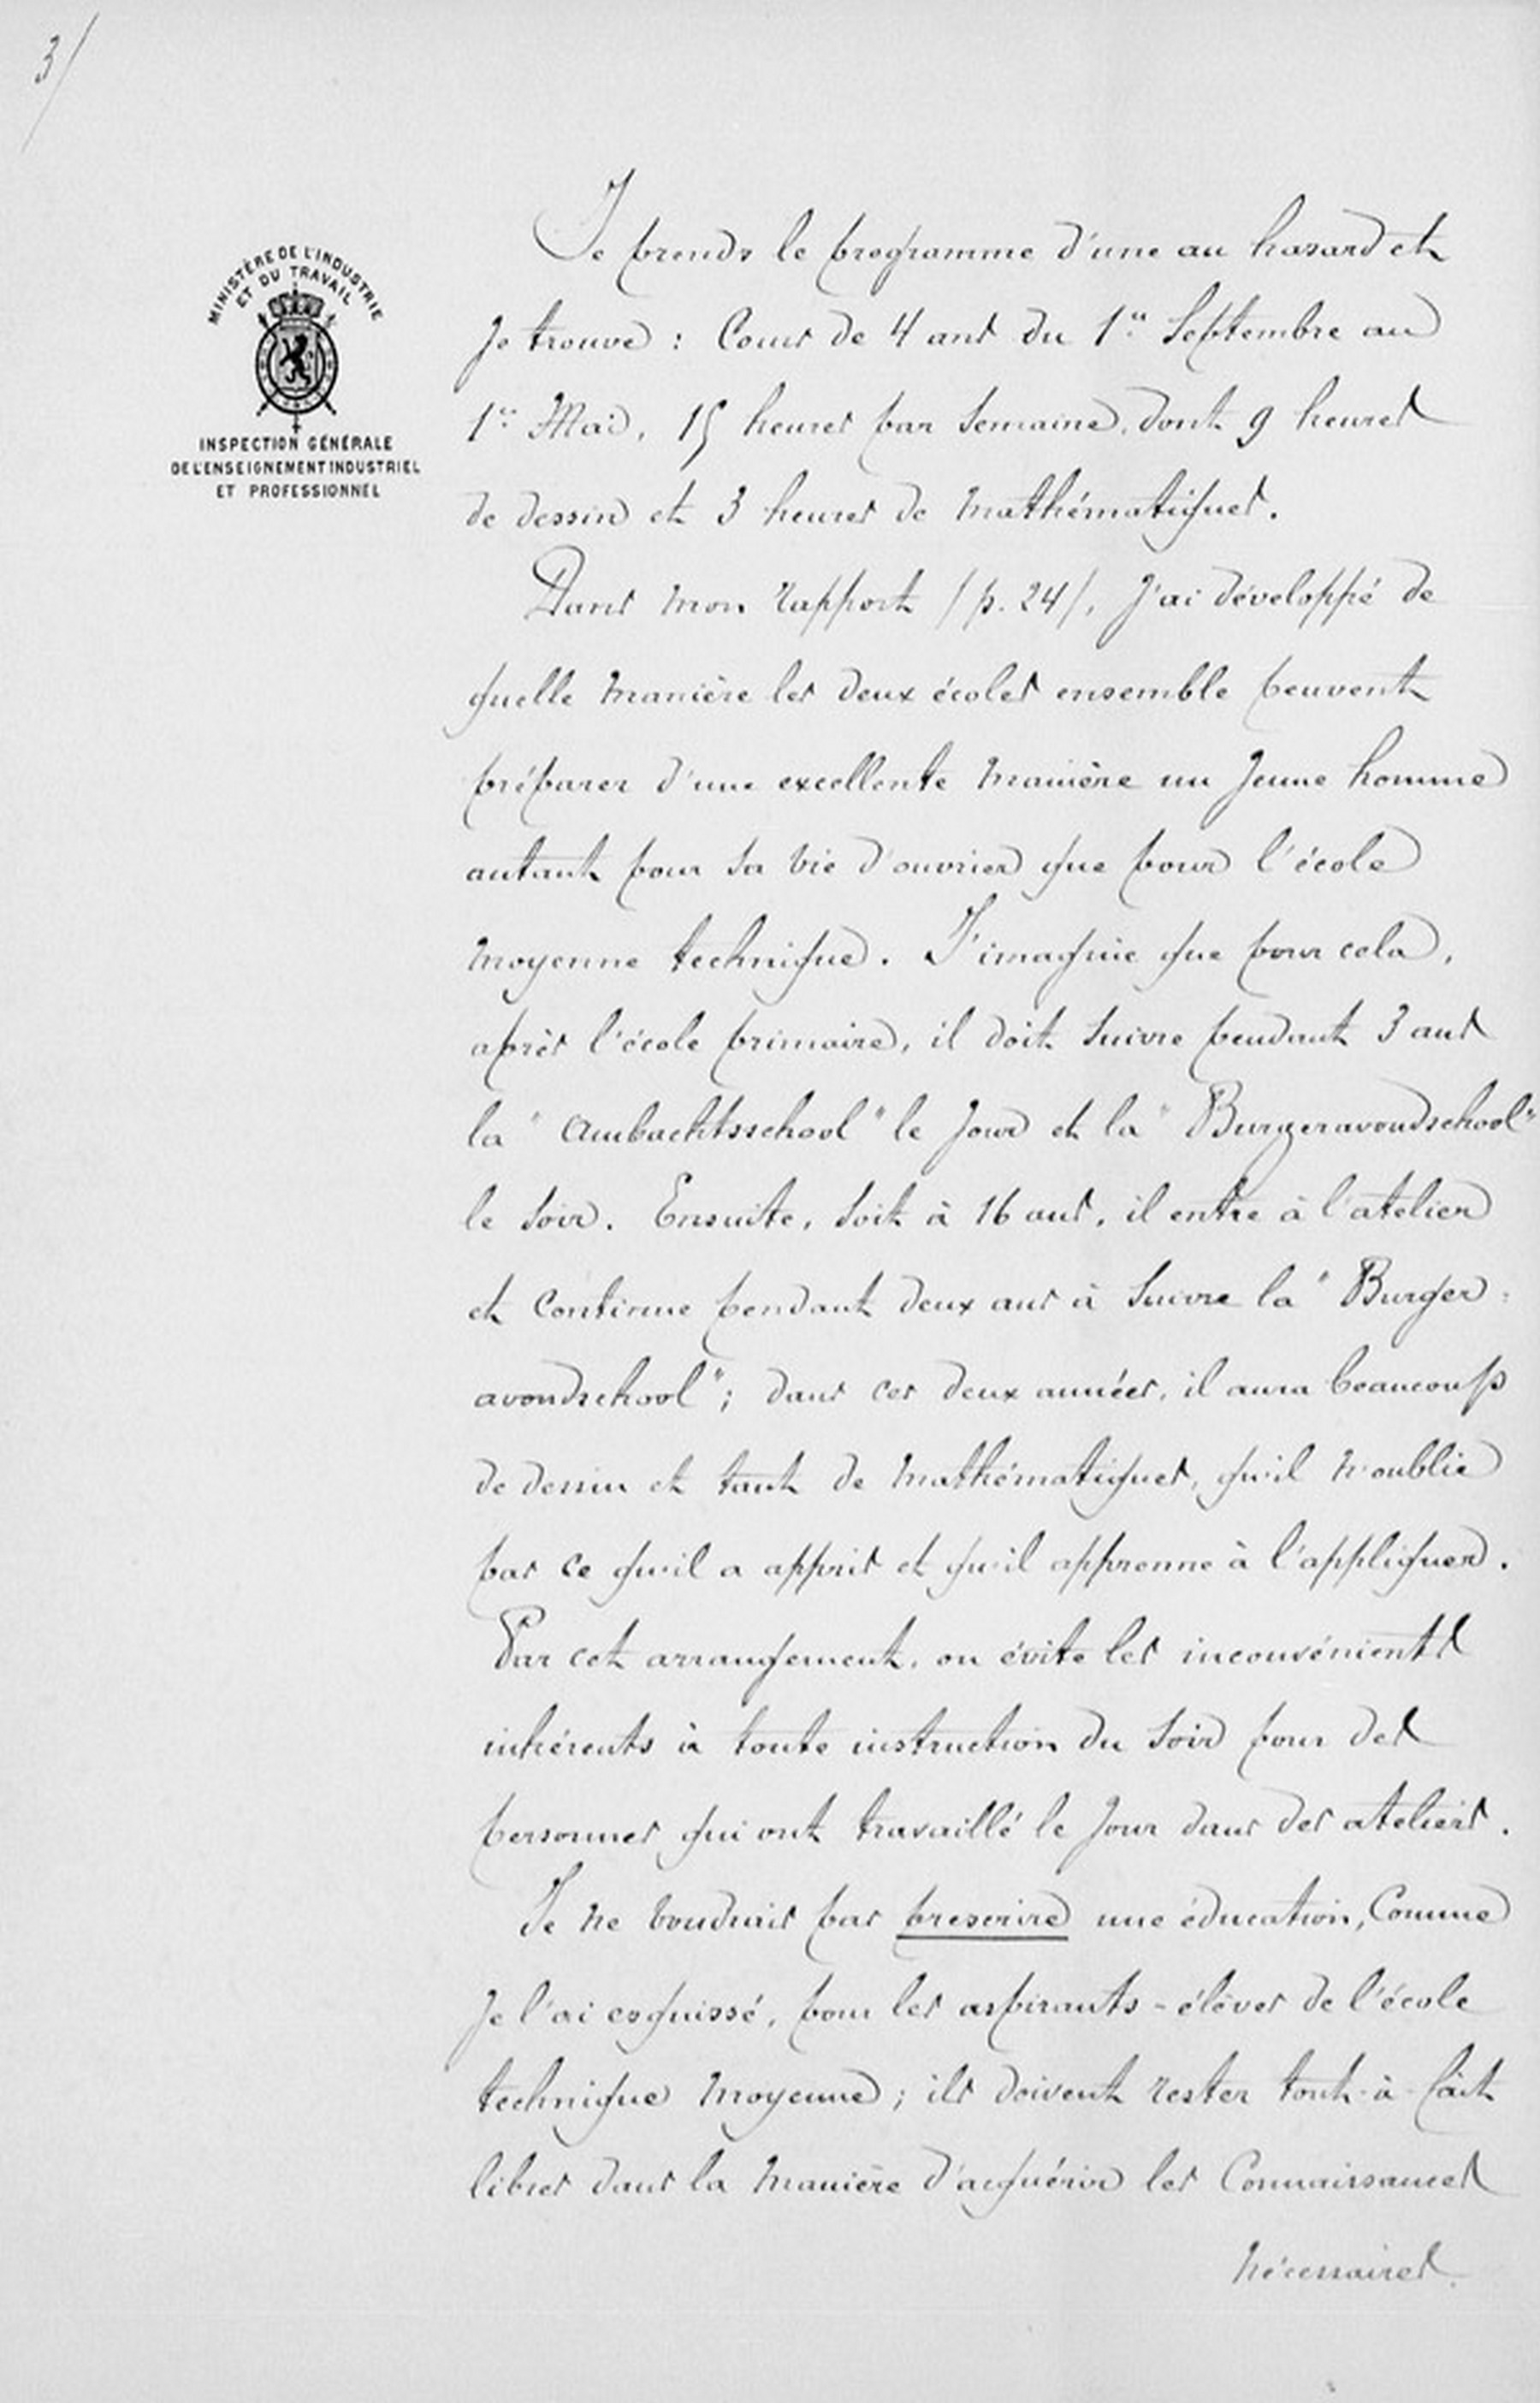 3/
MINISTÈRE DE L'INDUSTRIE
ET DU TRAVAIL
INSPECTION GÉNÉRALE
DE L'ENSEIGNEMENT INDUSTRIEL
ET PROFESSIONNEL
Je prends le programme d'une au hasard et
je trouve : Cours de 4 ans du 1er Septembre au
1er Mai, 15 heures par semaine, dont 9 heures
de dessin et 3 heures de mathématiques.
Dans mon rapport (p. 24), j'ai développé de
quelle manière les deux écoles ensemble peuvent
préparer d'une excellente manière un jeune homme
autant pour sa vie d'ouvrier que pour l'école
moyenne technique. J'imagine que pour cela,
après l'école primaire, il doit suivre pendant 3 ans
la "Ambachtsschool" le jour et la "Burgeravondschool"
le soir. Ensuite, soit à 16 ans, il entre à l'atelier
et continue pendant deux ans à suivre la "Burger-
avondschool"; dans ces deux années, il aura beaucoup
de dessin et tant de mathématiques, qu'il n'oublie
pas ce qu'il a appris et qu'il apprenne à l'appliquer.
Par cet arrangement, on évite les inconvénients
inhérents à toute instruction du soir pour des
personnes qui ont travaillé le jour dans des ateliers.
Je ne voudrais pas prescrire une éducation, comme
je l'ai esquissé, pour les aspirants-élèves de l'école
technique moyenne; ils doivent rester tout-à-fait
libres dans la manière d'acquérir les connaissances
nécessaires.